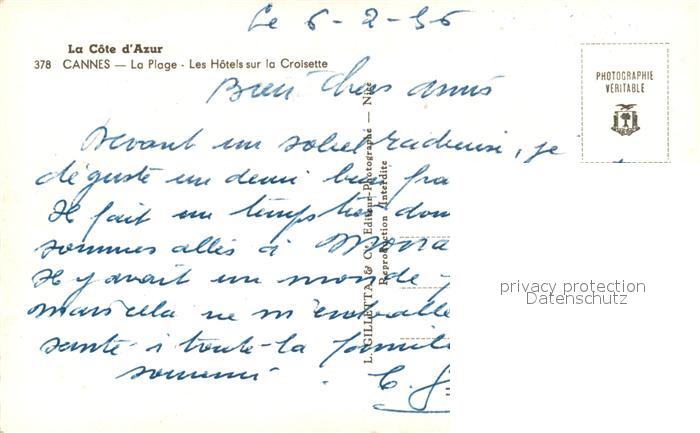 Le 6-2-56
La Côte d'Azur
378 CANNES — La Plage - Les Hôtels sur la Croisette
Bien chers amis
Devant un soleil radieux, je
déguste un demi bien fra
Il fait un temps très dou
sommes allés à Mona
Il y avait un monde
mais cela ne m'emballe
santé à toute la famille
souvenir.
PHOTOGRAPHIE
VÉRITABLE
L. GILLETTA & C., Editeur-Photographe — Nice
Reproduction Interdite
privacy protection
Datenschutz